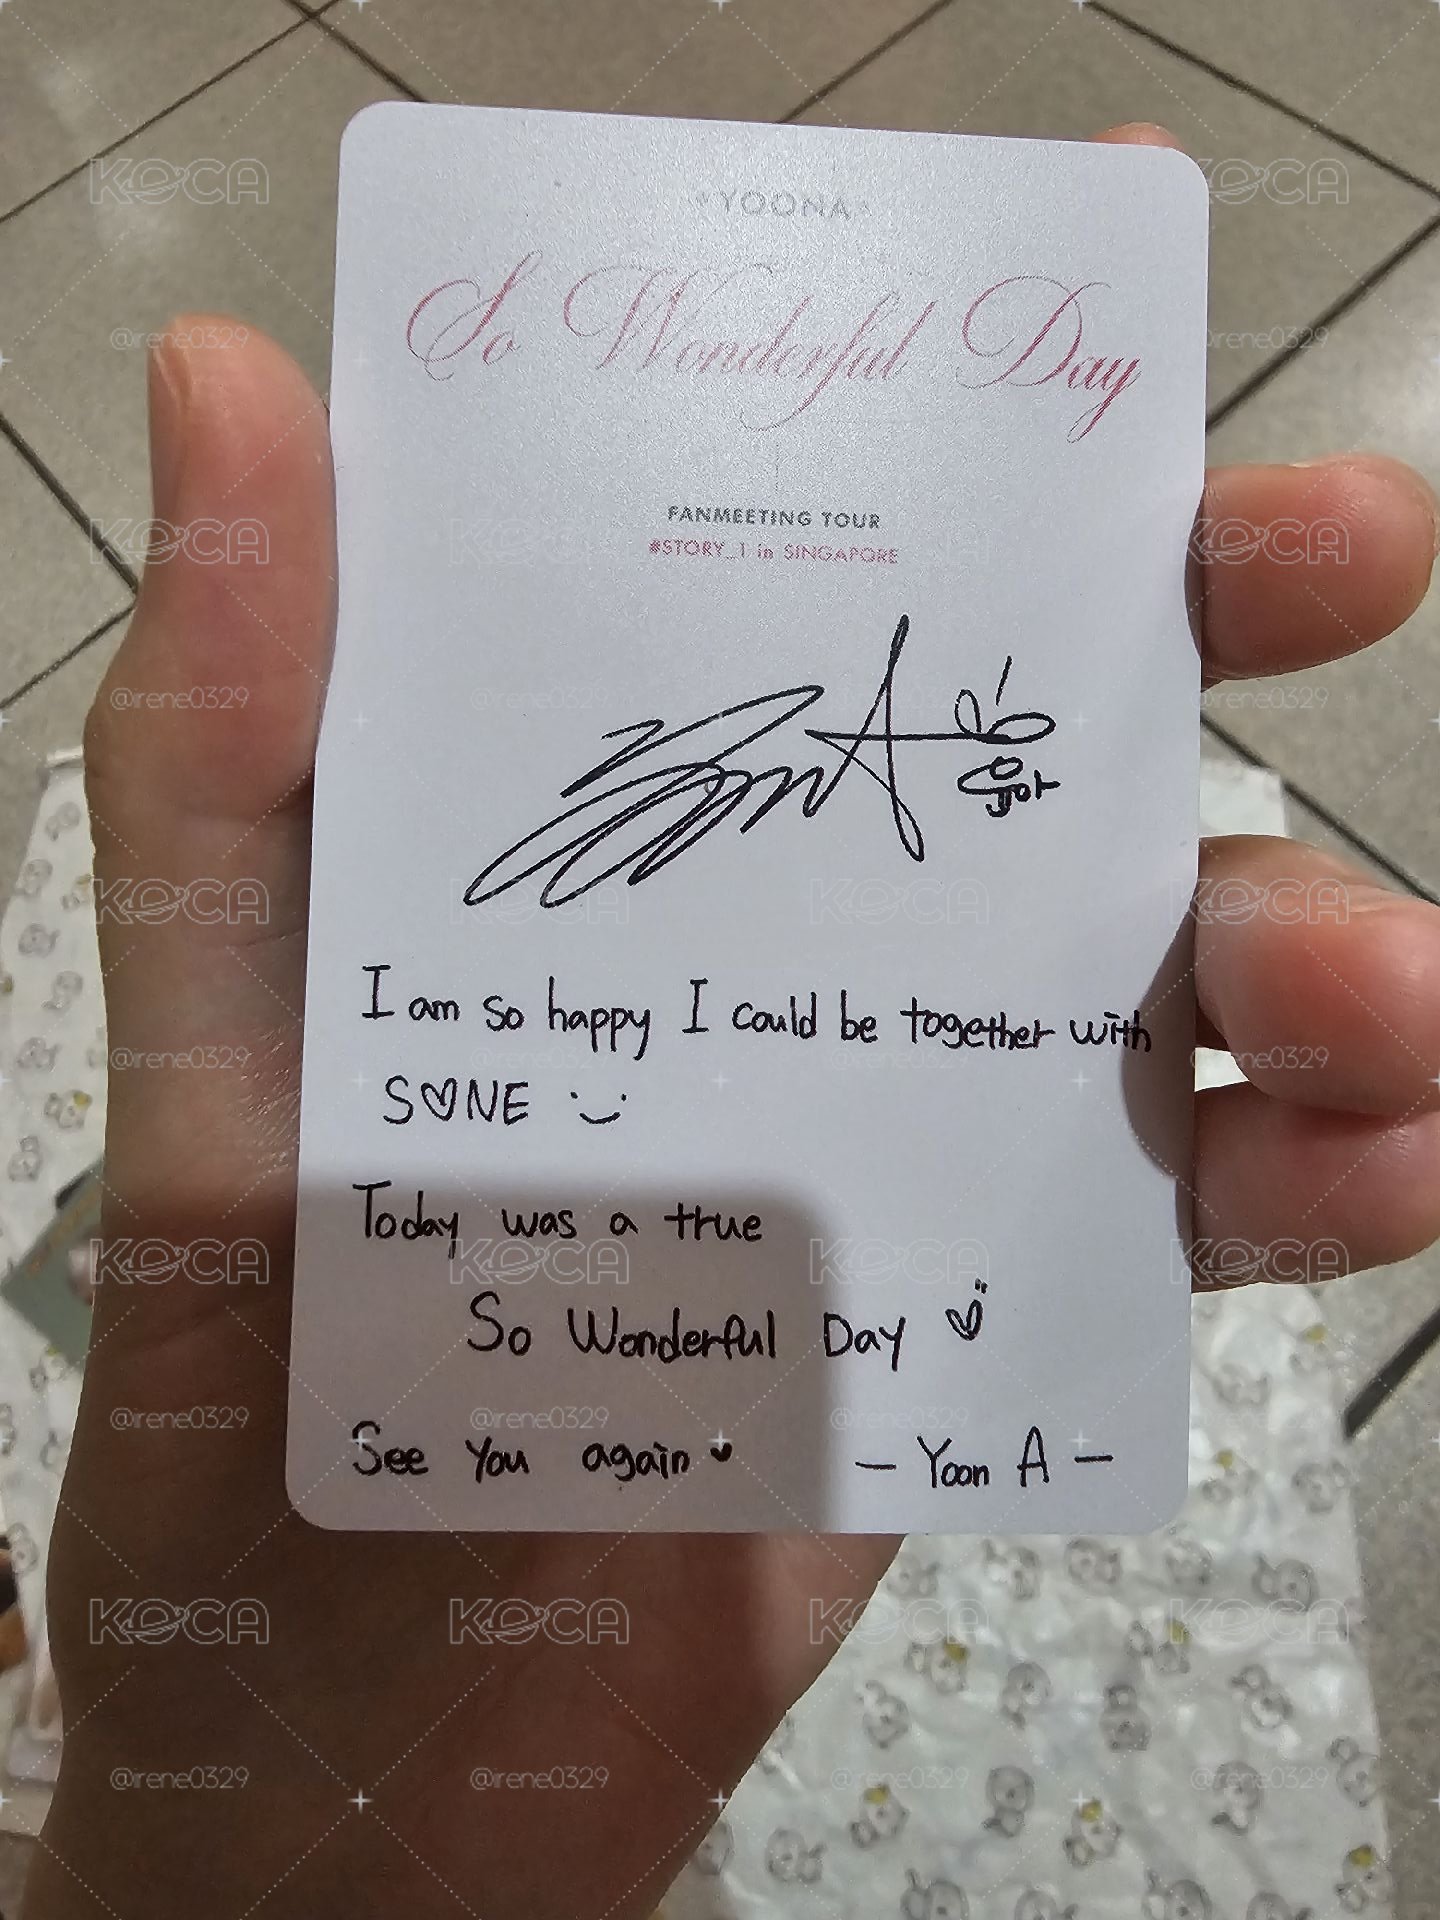 YOONA
So Wonderful Day
FANMEETING TOUR
#STORY_1 in SINGAPORE
융아
I am so happy I could be together with
S♡NE
Today was a true
So Wonderful Day ♡
See You again ♥ — Yoon A —
KOCA
@rene0329